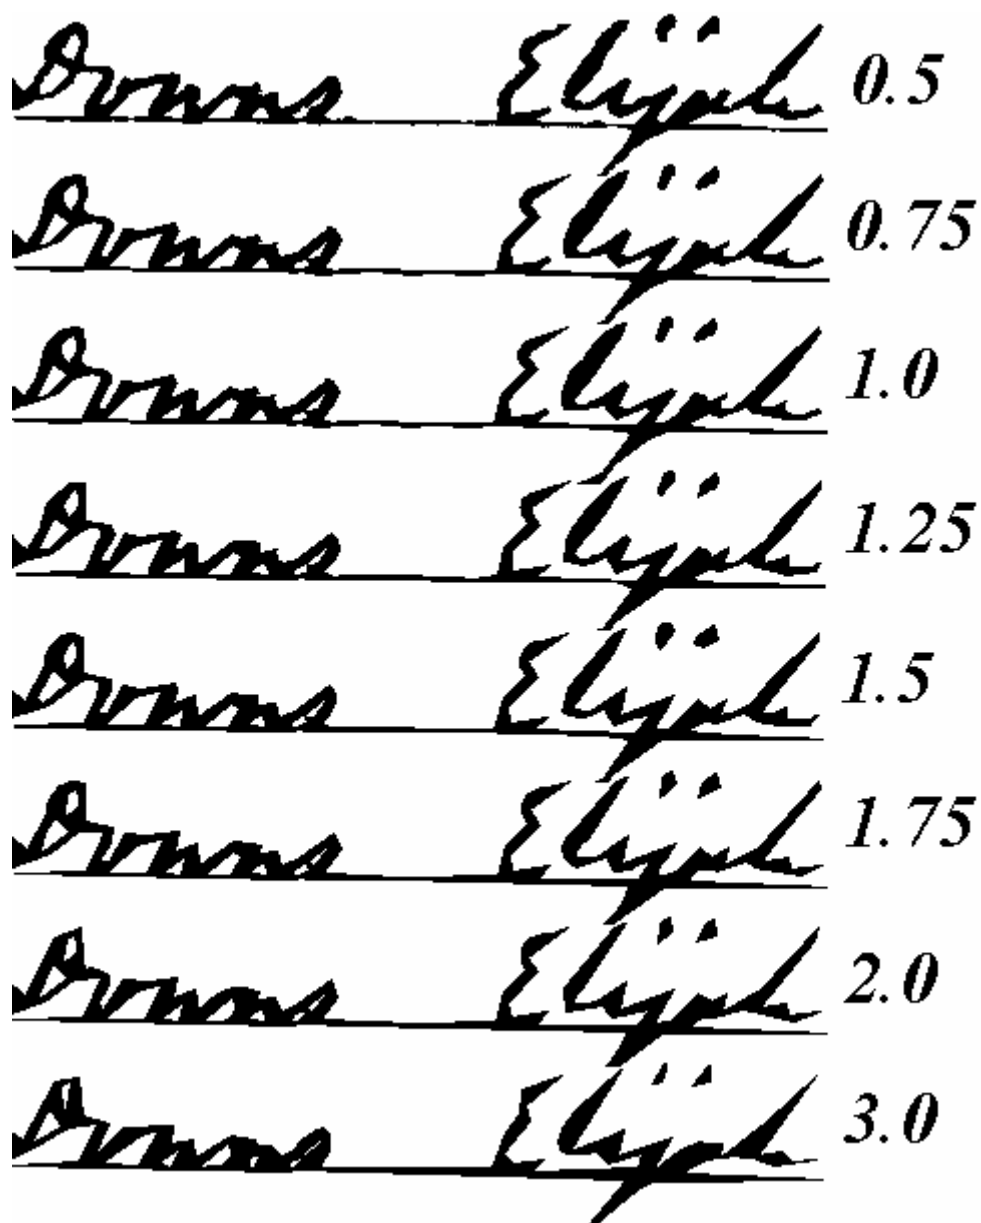 Downs Elijah 0.5
Downs Elijah 0.75
Downs Elijah 1.0
Downs Elijah 1.25
Downs Elijah 1.5
Downs Elijah 1.75
Downs Elijah 2.0
Downs Elijah 3.0